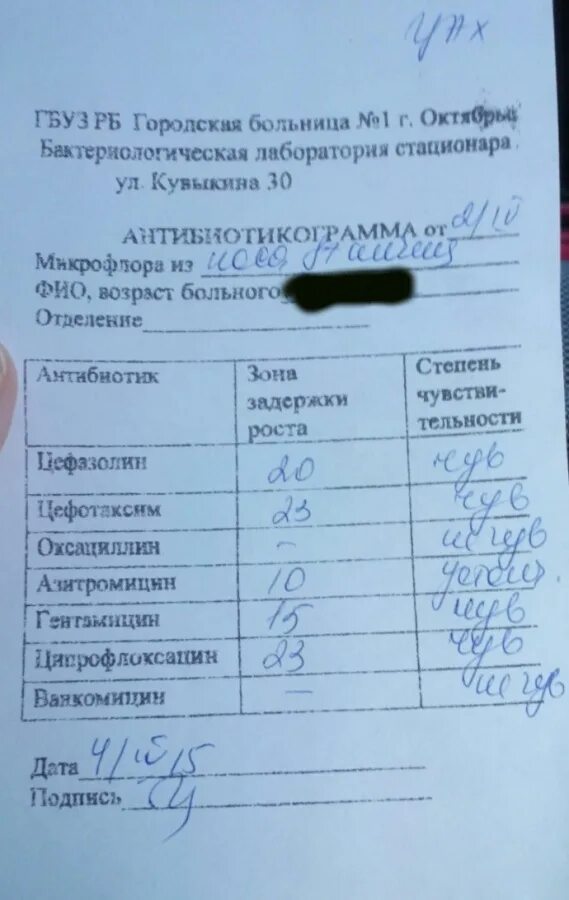 ГБУЗ РБ Городская больница №1 г. Октябрьс
Бактериологическая лаборатория стационара
ул. Кувыкина 30
АНТИБИОТИКОГРАММА от 2/IV
Микрофлора из носа
ФИО, возраст больного
Отделение
Антибиотик Зона задержки роста Степень чувстви-тельности
Цефазолин 20 чув
Цефотаксим 23 чув
Оксациллин – не чув
Азитромицин 10 устойч.
Гентамицин 15 чув
Ципрофлоксацин 23 чув
Ванкомицин – не чув
Дата 4/IV 15
Подпись